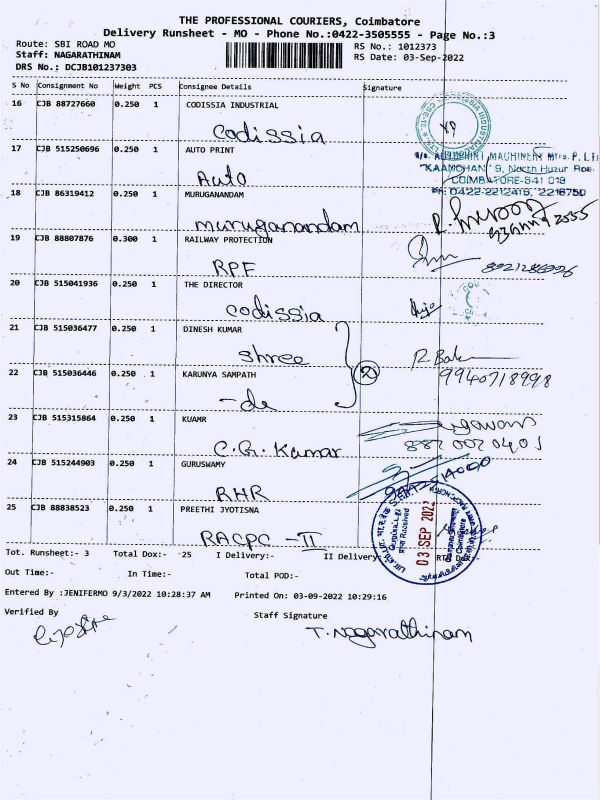 THE PROFESSIONAL COURIERS, Coimbatore
Delivery Runsheet - MO - Phone No.:0422-3505555 - Page No.:3
Route: SBI ROAD MO
RS No.: 1012373
Staff: NAGARATHINAM
RS Date: 03-Sep-2022
DRS No.: DCJB101237303
S No Consignment No Weight PCS Consignee Details Signature
16 CJB 88727660 0.250 1 CODISSIA INDUSTRIAL
Codissia
17 CJB 515250696 0.250 1 AUTO PRINT
Auto
"KAANCHAN" 9, North Huzur Roa
COIMBATORE-641 018
Ph: 0422-2212416, 2216750
18 CJB 86319412 0.250 1 MURUGANANDAM
muruganandam
19 CJB 88807876 0.300 1 RAILWAY PROTECTION
RPF
20 CJB 515041936 0.250 1 THE DIRECTOR
codissia
21 CJB 515036477 0.250 1 DINESH KUMAR
Shree
22 CJB 515036446 0.250 1 KARUNYA SAMPATH
9940718998
-de
23 CJB 515315864 0.250 1 KUAMR
C.G. Kumar
24 CJB 515244903 0.250 1 GURUSWAMY
RHR
25 CJB 88838523 0.250 1 PREETHI JYOTISNA
RACPC - II
03 SEP 2022
Tot. Runsheet:- 3 Total Dox:- 25 I Delivery:- II Delivery:- RTO Dox:-
Out Time:- In Time:- Total POD:-
Entered By :JENIFERMO 9/3/2022 10:28:37 AM Printed On: 03-09-2022 10:29:16
Verified By Staff Signature
T. Nagarathinam